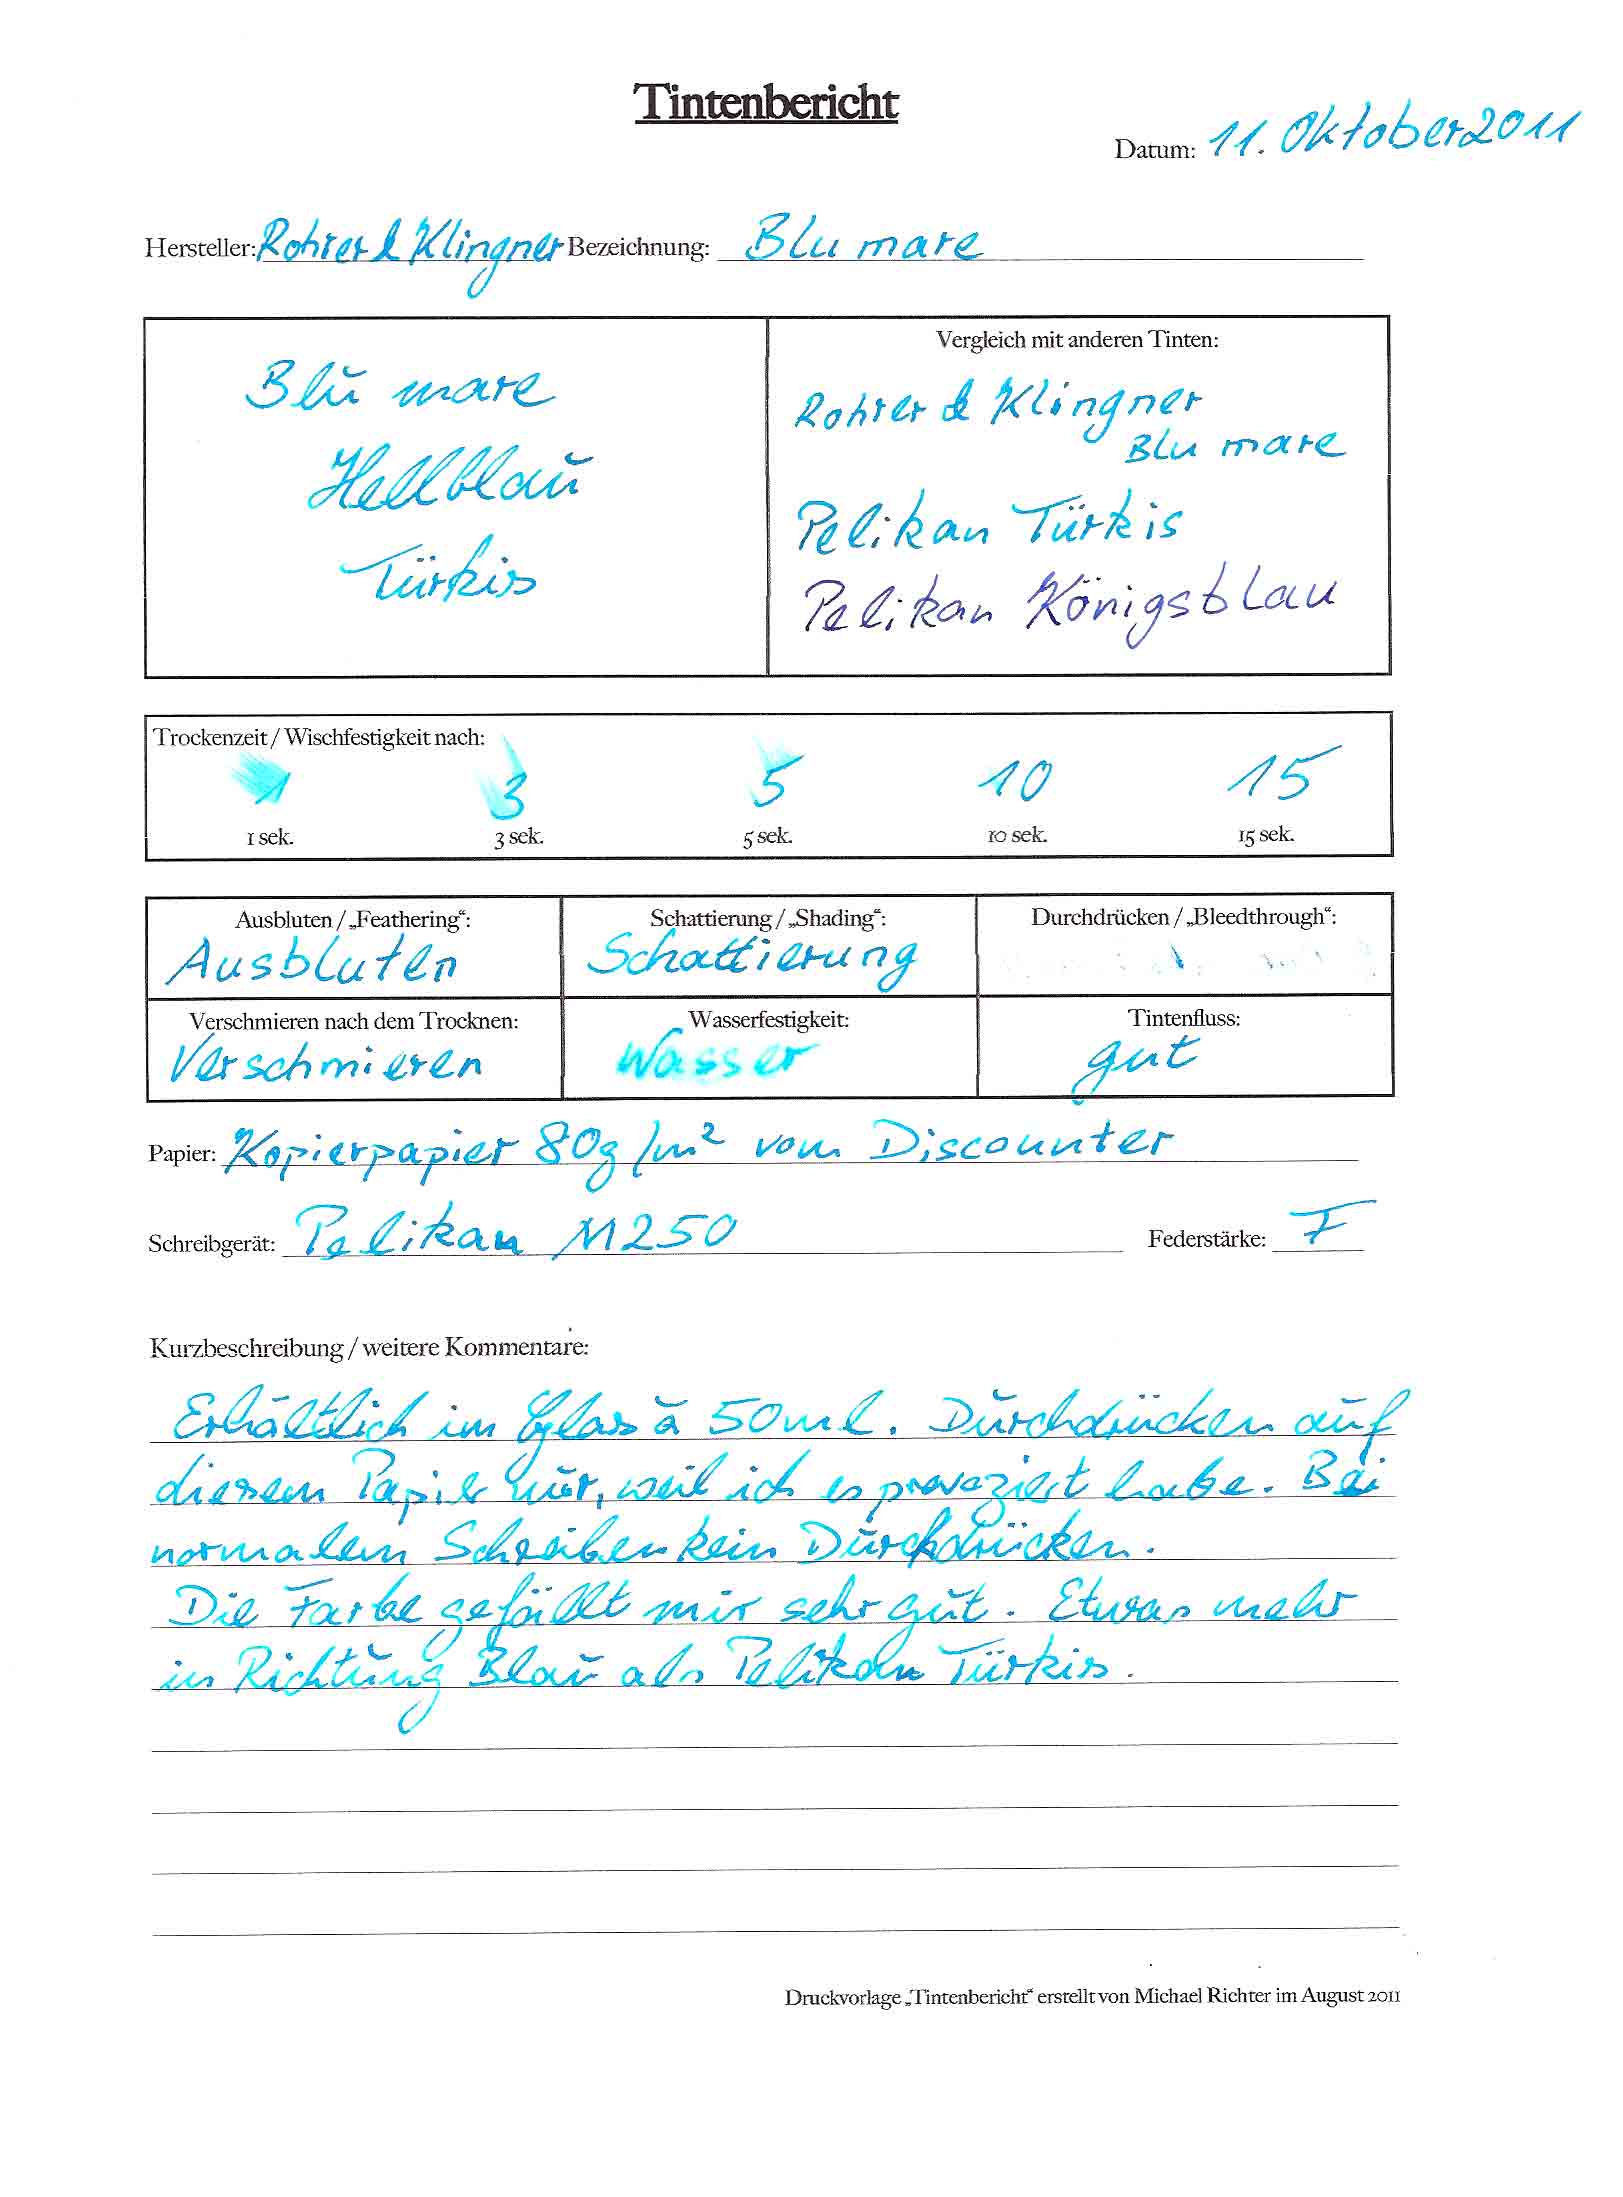 Tintenbericht
Datum: 11. Oktober 2011
Hersteller: Rohrer & Klingner Bezeichnung: Blu mare
Blu mare
Hellblau
Türkis
Vergleich mit anderen Tinten:
Rohrer & Klingner
Blu mare
Pelikan Türkis
Pelikan Königsblau
Trockenzeit / Wischfestigkeit nach:
1 3 5 10 15
1 sek. 3 sek. 5 sek. 10 sek. 15 sek.
Ausbluten / „Feathering“: Schattierung / „Shading“: Durchdrücken / „Bleedthrough“:
Ausbluten Schattierung
Verschmieren nach dem Trocknen: Wasserfestigkeit: Tintenfluss:
Verschmieren Wasser gut
Papier: Kopierpapier 80g/m² vom Discounter
Schreibgerät: Pelikan M250 Federstärke: F
Kurzbeschreibung / weitere Kommentare:
Erhältlich im Glas à 50ml. Durchdrücken auf
diesem Papier nur, weil ich es provoziert habe. Bei
normalem Schreiben kein Durchdrücken.
Die Farbe gefällt mir sehr gut. Etwas mehr
in Richtung Blau als Pelikan Türkis.
Druckvorlage „Tintenbericht“ erstellt von Michael Richter im August 2011